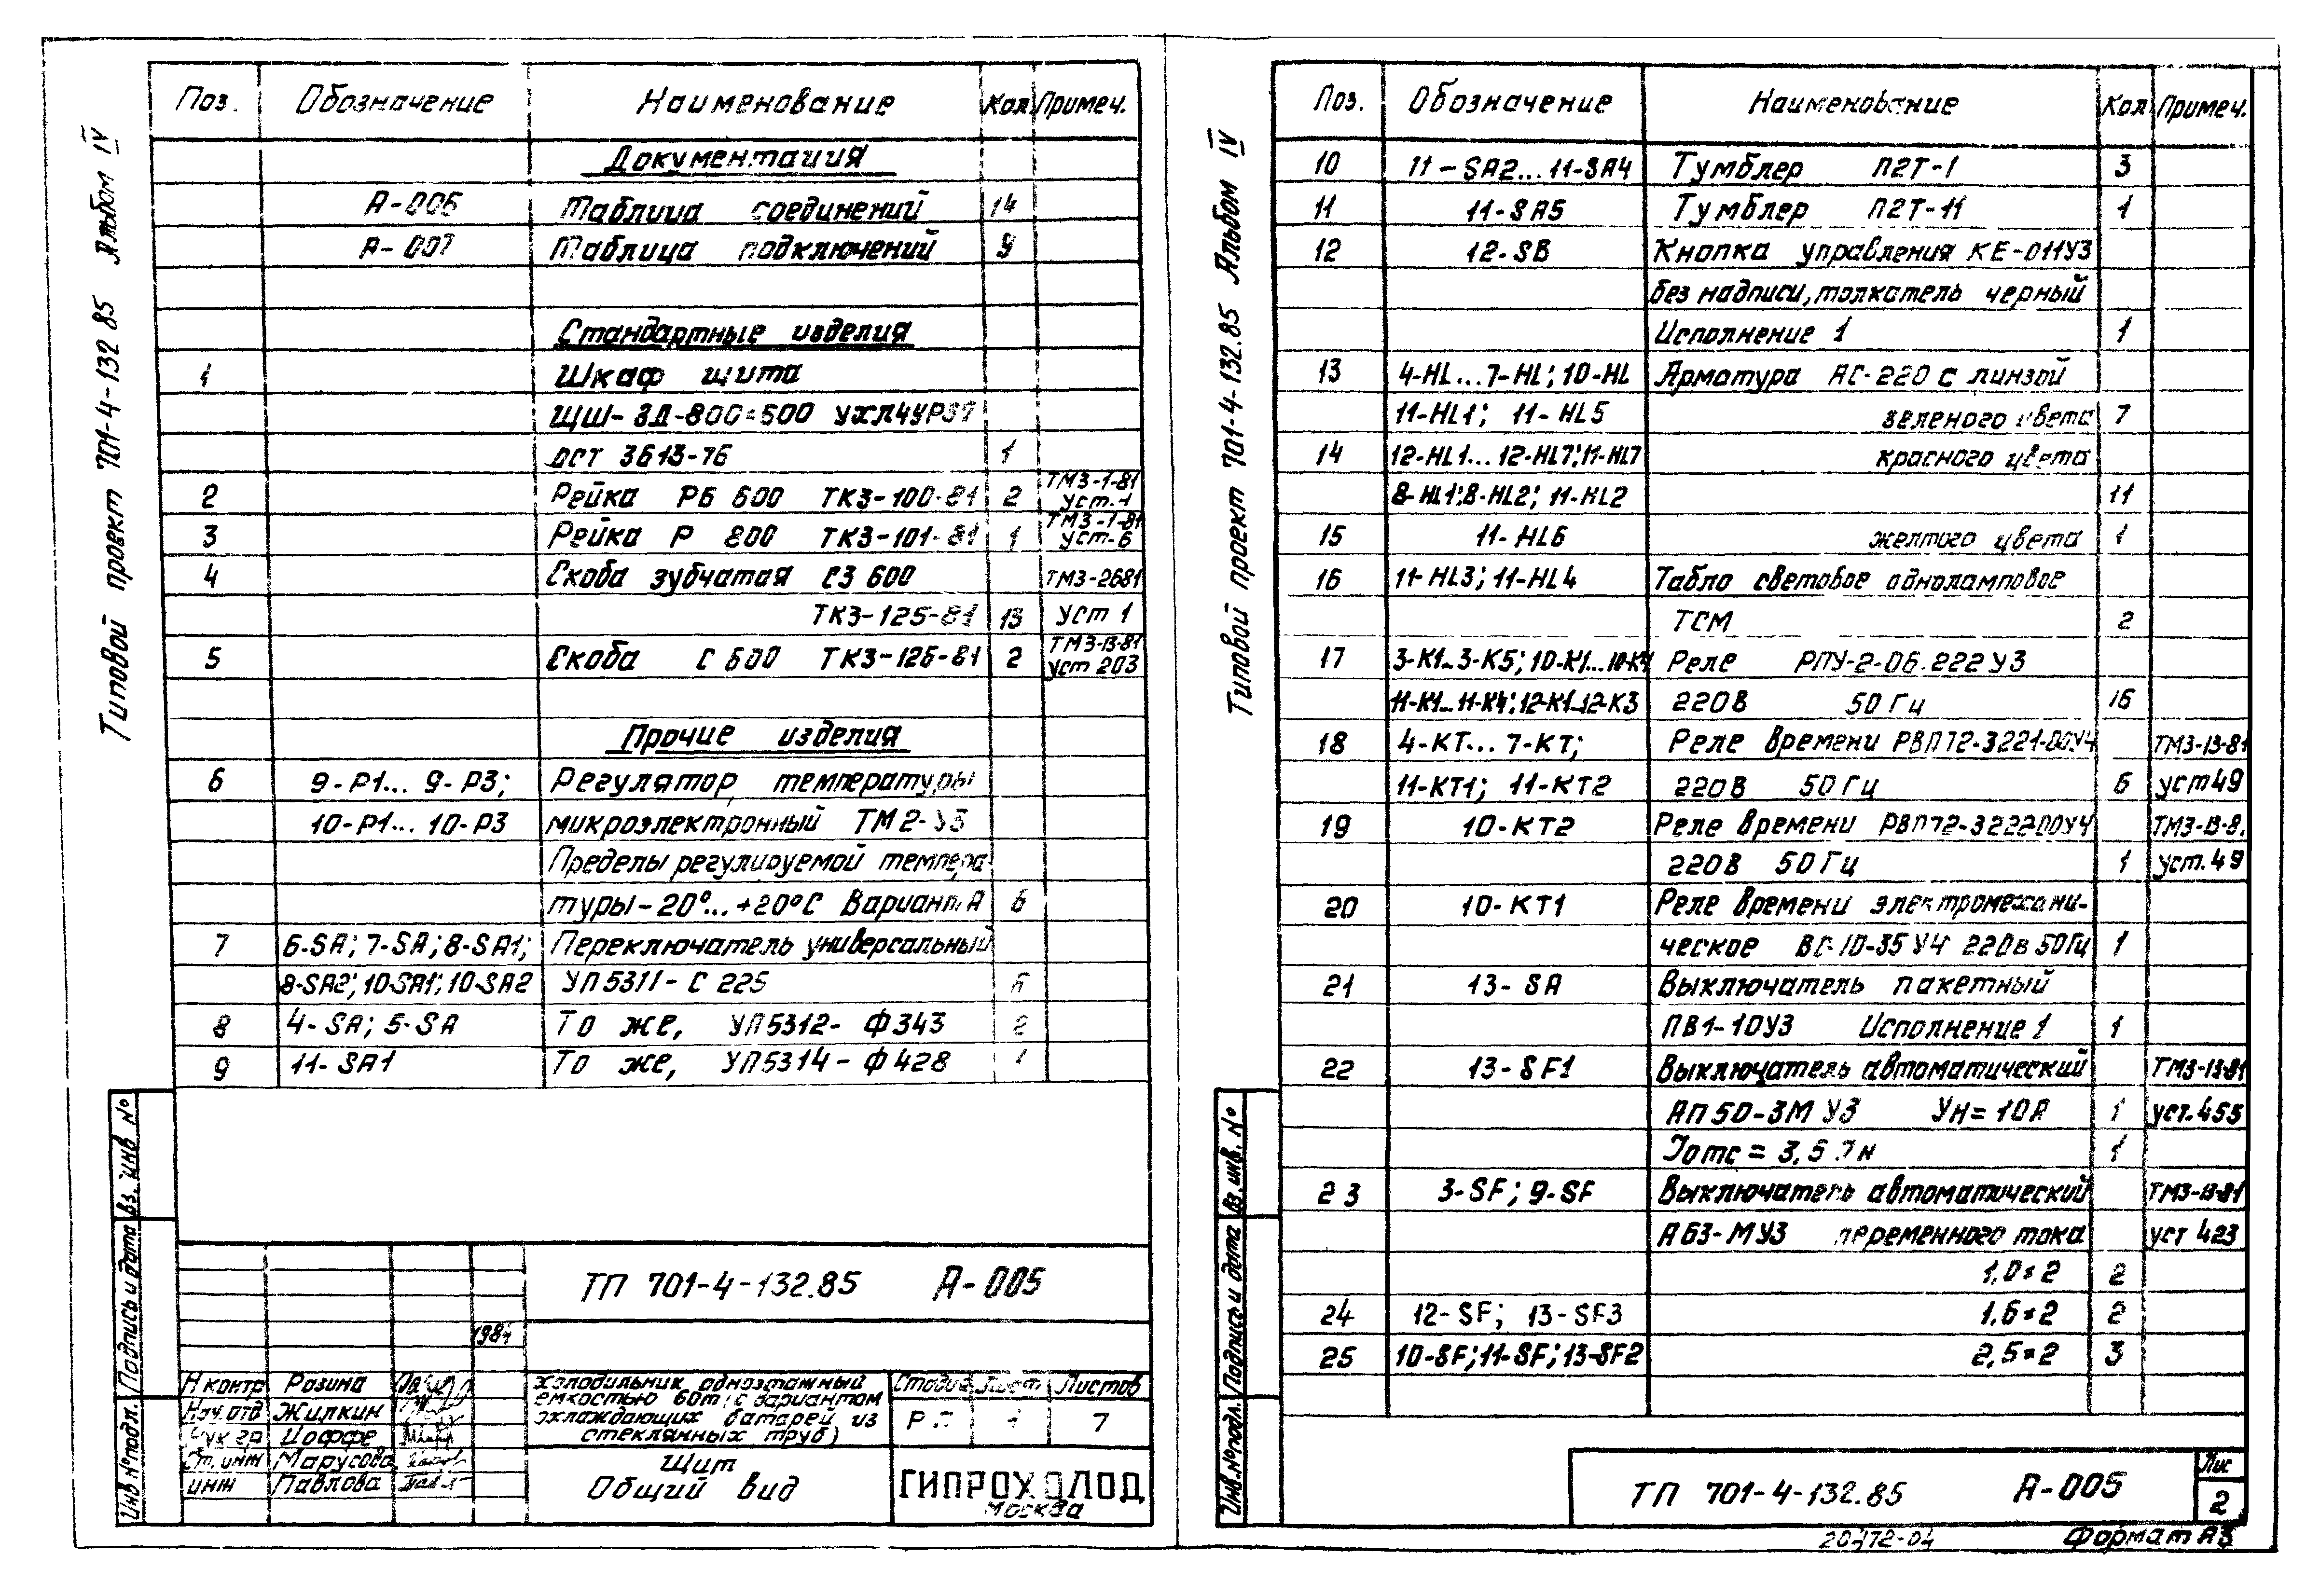 Типовой проект 701-4-132 85 Альбом IV
Поз. Обозначение Наименование Кол Примеч.
Документация
А-006 Таблица соединений 14
А-007 Таблица подключений 9
Стандартные изделия
1 Шкаф щита
ЩШ-ЗД-800×600 УХЛ4УР37
ост 3613-76 1
2 Рейка РБ 600 ТК3-100-81 2 ТМ3-1-81 уст.-1
3 Рейка Р 800 ТК3-101-81 1 ТМ3-1-81 уст.-6
4 Скоба зубчатая СЗ 600 ТМ3-2681
ТК3-125-81 13 уст 1
5 Скоба С 600 ТК3-126-81 2 ТМ3-13-81 уст 203
Прочие изделия
6 9-Р1... 9-Р3; Регулятор температуры
10-Р1... 10-Р3 микроэлектронный ТМ2-У3
Пределы регулируемой темпера
туры-20°...+20°С Вариант А 6
7 6-SA; 7-SA; 8-SA1; Переключатель универсальный
8-SA2; 10-SA1; 10-SA2 УП5311-С 225 6
8 4-SA; 5-SA То же, УП5312-Ф343 2
9 11-SA1 То же, УП5314-Ф428 1
Вз. инв №
Подпись и дата
Инв № подл.
ТП 701-4-132.85 А-005
1984
Н контр Розина
Нач. отд Жилкин
Рук гр Иоффе
Ст. инж Марусова
инж Павлова
Холодильник одноэтажный
емкостью 60т (с вариантом
охлаждающих батарей из
стеклянных труб)
Стадия Лист Листов
Р.П. 1 7
Щит
Общий вид
ГИПРОХОЛОД
Москва
Типовой проект 701-4-132.85 Альбом IV
Поз. Обозначение Наименование Кол Примеч.
10 11-SA2...11-SA4 Тумблер П2Т-1 3
11 11-SA5 Тумблер П2Т-11 1
12 12-SB Кнопка управления КЕ-011У3
без надписи, толкатель черный
Исполнение 1 1
13 4-HL...7-HL; 10-HL Арматура АС-220 с линзой
11-HL1; 11-HL5 зеленого цвета 7
14 12-HL1...12-HL7; 11-HL7 красного цвета
8-HL1; 8-HL2; 11-HL2 11
15 11-HL6 желтого цвета 1
16 11-HL3; 11-HL4 Табло световое одноламповое
ТСМ 2
17 3-К1...3-К5; 10-К1...10-К4 Реле РПУ-2-06.222У3
11-К1...11-К4; 12-К1...12-К3 220В 50 Гц 16
18 4-КТ... 7-КТ; Реле времени РВП72-3221-00У4 ТМ3-13-81
11-КТ1; 11-КТ2 220В 50 Гц 6 уст49
19 10-КТ2 Реле времени РВП72-322200У4 ТМ3-13-8.
220В 50 Гц 1 уст. 49
20 10-КТ1 Реле времени электромехани-
ческое ВС-10-35 У4 220в 50Гц 1
21 13-SA Выключатель пакетный
ПВ1-10У3 Исполнение 1 1
22 13-SF1 Выключатель автоматический ТМ3-13-81
АП50-3М У3 Ун=10А 1 уст.455
Jотс = 3,5 Jн 1
23 3-SF; 9-SF Выключатель автоматический ТМ3-13-81
А63-МУ3 переменного тока уст 423
1,0×2 2
24 12-SF; 13-SF3 1,6×2 2
25 10-SF; 11-SF; 13-SF2 2,5×2 3
Вз. инв. №
Подпись и дата
Инв. № подл.
ТП 701-4-132.85 А-005
Лис
2
20472-04 Формат А3